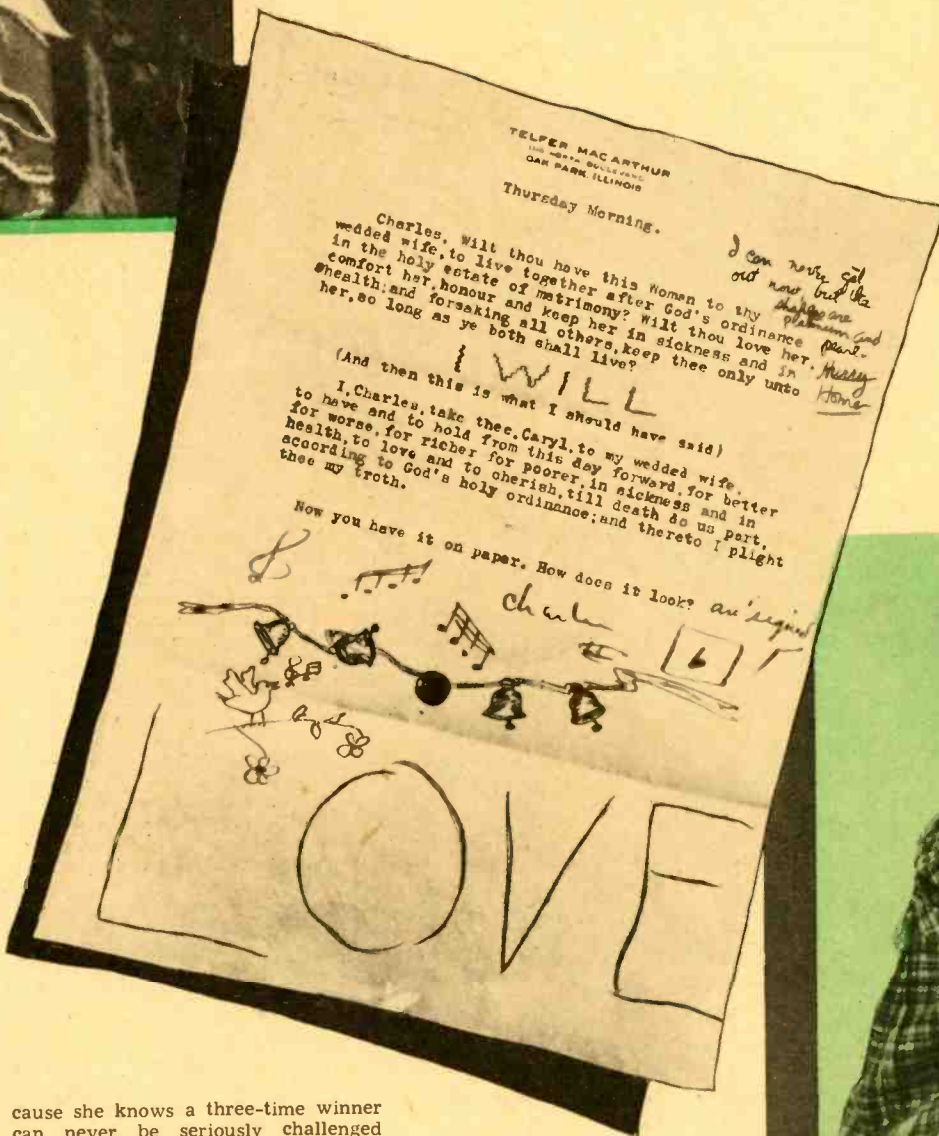 TELFER MACARTHUR
NORTH BOULEVARD
OAK PARK, ILLINOIS
Thursday Morning.
I can never get
out now, but the
shackles are
platinum and
pearl.
Hurry
Home
Charles, Wilt thou have this Woman to thy
wedded wife, to live together after God's ordinance
in the holy estate of matrimony? Wilt thou love her,
comfort her, honour and keep her in sickness and in
health; and forsaking all others, keep thee only unto
her, so long as ye both shall live?
I WILL
(And then this is what I should have said)
I, Charles, take thee, Caryl, to my wedded wife,
to have and to hold from this day forward, for better
for worse, for richer for poorer, in sickness and in
health, to love and to cherish, till death do us part,
according to God's holy ordinance; and thereto I plight
thee my troth.
Now you have it on paper. How does it look? an' signed
Charles
LOVE
cause she knows a three-time winner
can never be seriously challenged